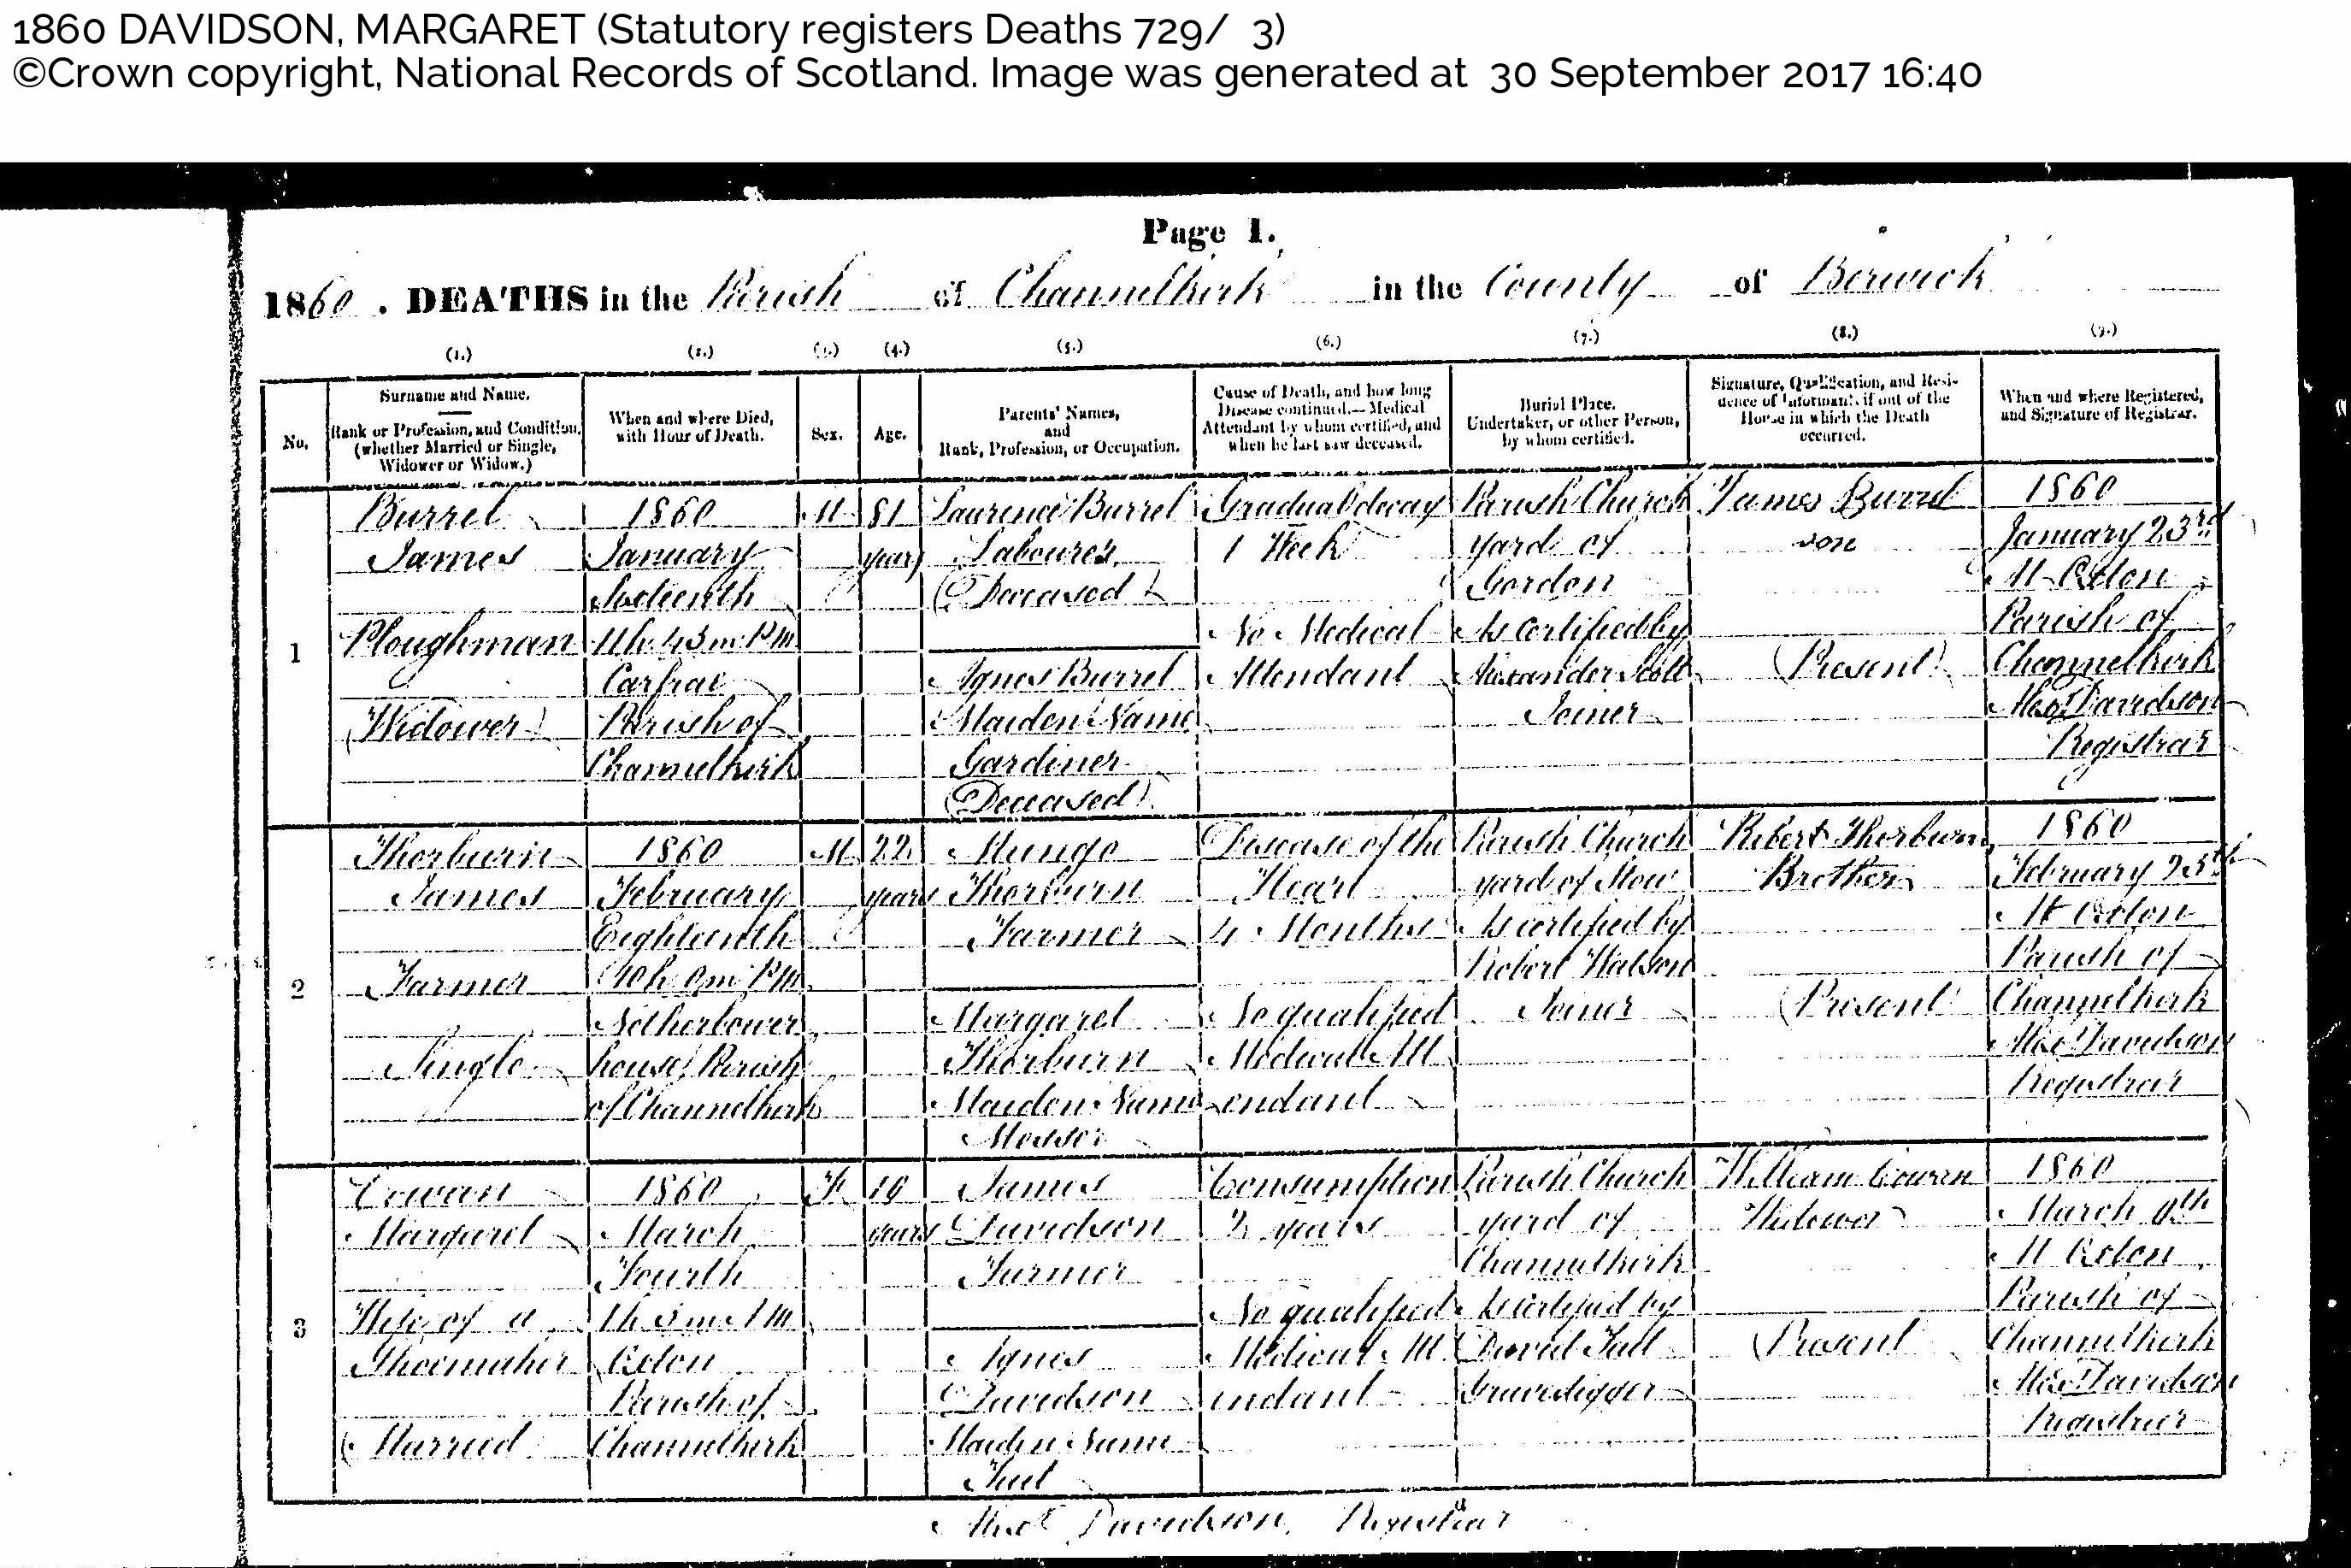 1860 DAVIDSON, MARGARET (Statutory registers Deaths 729/ 3)
©Crown copyright, National Records of Scotland. Image was generated at 30 September 2017 16:40
Page 1.
1860. DEATHS in the Parish of Channelkirk in the County of Berwick
(1.) (2.) (3.) (4.) (5.) (6.) (7.) (8.) (9.)
No.
Surname and Name.
Rank or Profession, and Condition,
(whether Married or Single,
Widower or Widow.)
When and where Died,
with Hour of Death.
Sex.
Age.
Parents' Names,
and
Rank, Profession, or Occupation.
Cause of Death, and how long
Disease continued.—Medical
Attendant by whom certified, and
when he last saw deceased.
Burial Place.
Undertaker, or other Person,
by whom certified.
Signature, Qualification, and Resi-
dence of Informant, if out of the
House in which the Death
occurred.
When and where Registered,
and Signature of Registrar.
1
Burrel
James
Ploughman
(Widower)
1860
January
11h 45m P.M.
Carfrae
Parish of
Channelkirk
M
81
years
Laurence Burrel
Labourer
(Deceased)
Agnes Burrel
Maiden Name
Gardiner
(Deceased)
Gradual decay
1 Week
No Medical
Attendant
Parish Church
yard of
Gordon
As Certified by
Alexander Scott
Joiner
James Burrel
son
(Present)
1860
January 23rd
At Oxton
Parish of
Channelkirk
Alexr Davidson
Registrar
2
Thorburn
James
Farmer
Single
1860
February
Eighteenth
10h 0m P.M.
Netherbower
house, Parish
of Channelkirk
M
22
years
Mungo
Thorburn
Farmer
Margaret
Thorburn
Maiden Name
Messer
Disease of the
Heart
4 Months
No qualified
Medical Att
endant
Parish Church
yard of Stow
As certified by
Robert Watson
Joiner
Robert Thorburn
Brother
(Present)
1860
February
At Oxton
Parish of
Channelkirk
Alexr Davidson
Registrar
3
Cowan
Margaret
Wife of a
Shoemaker
(Married
1860
March
Fourth
Oxton
Parish of
Channelkirk
F
years
James
Davidson
Farmer
Agnes
Davidson
Maiden Name
Consumption
2 years
No qualified
Medical Att
endant
Parish Church
yard of
Channelkirk
As certified by
David
Gravedigger
William Cowan
Widower
(Present)
1860
March
At Oxton
Parish of
Channelkirk
Alexr Davidson
Registrar
Alexr Davidson, Registrar